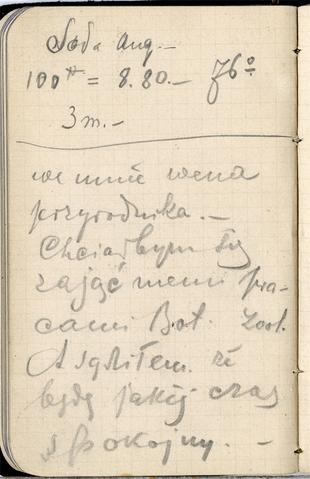 Soda ang.-
100 tt = 8.80.- 76°
3 m.-
we mnie wena
przyrodnika.-
Chciałbym się
zająć memi pra-
cami Bot. Zool.
A sądziłem że
będę jakiś czas
spokojny. -